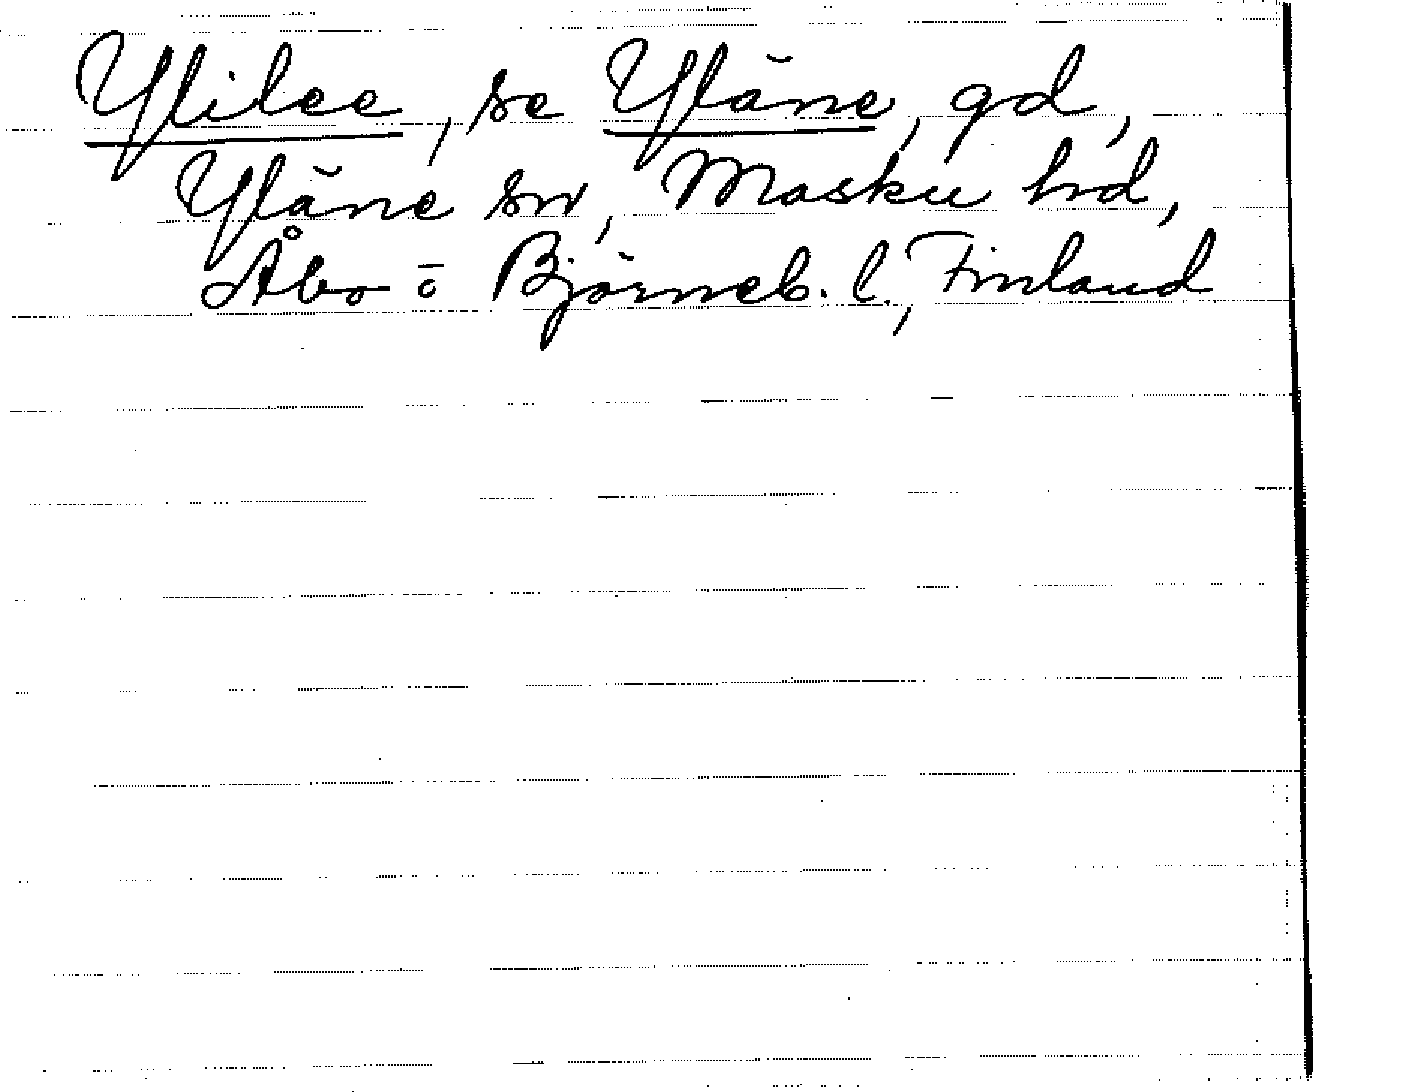 Ylilee, se Yläne, gd,
Yläne sn, Masku hd,
Åbo o Björneb. l., Finland